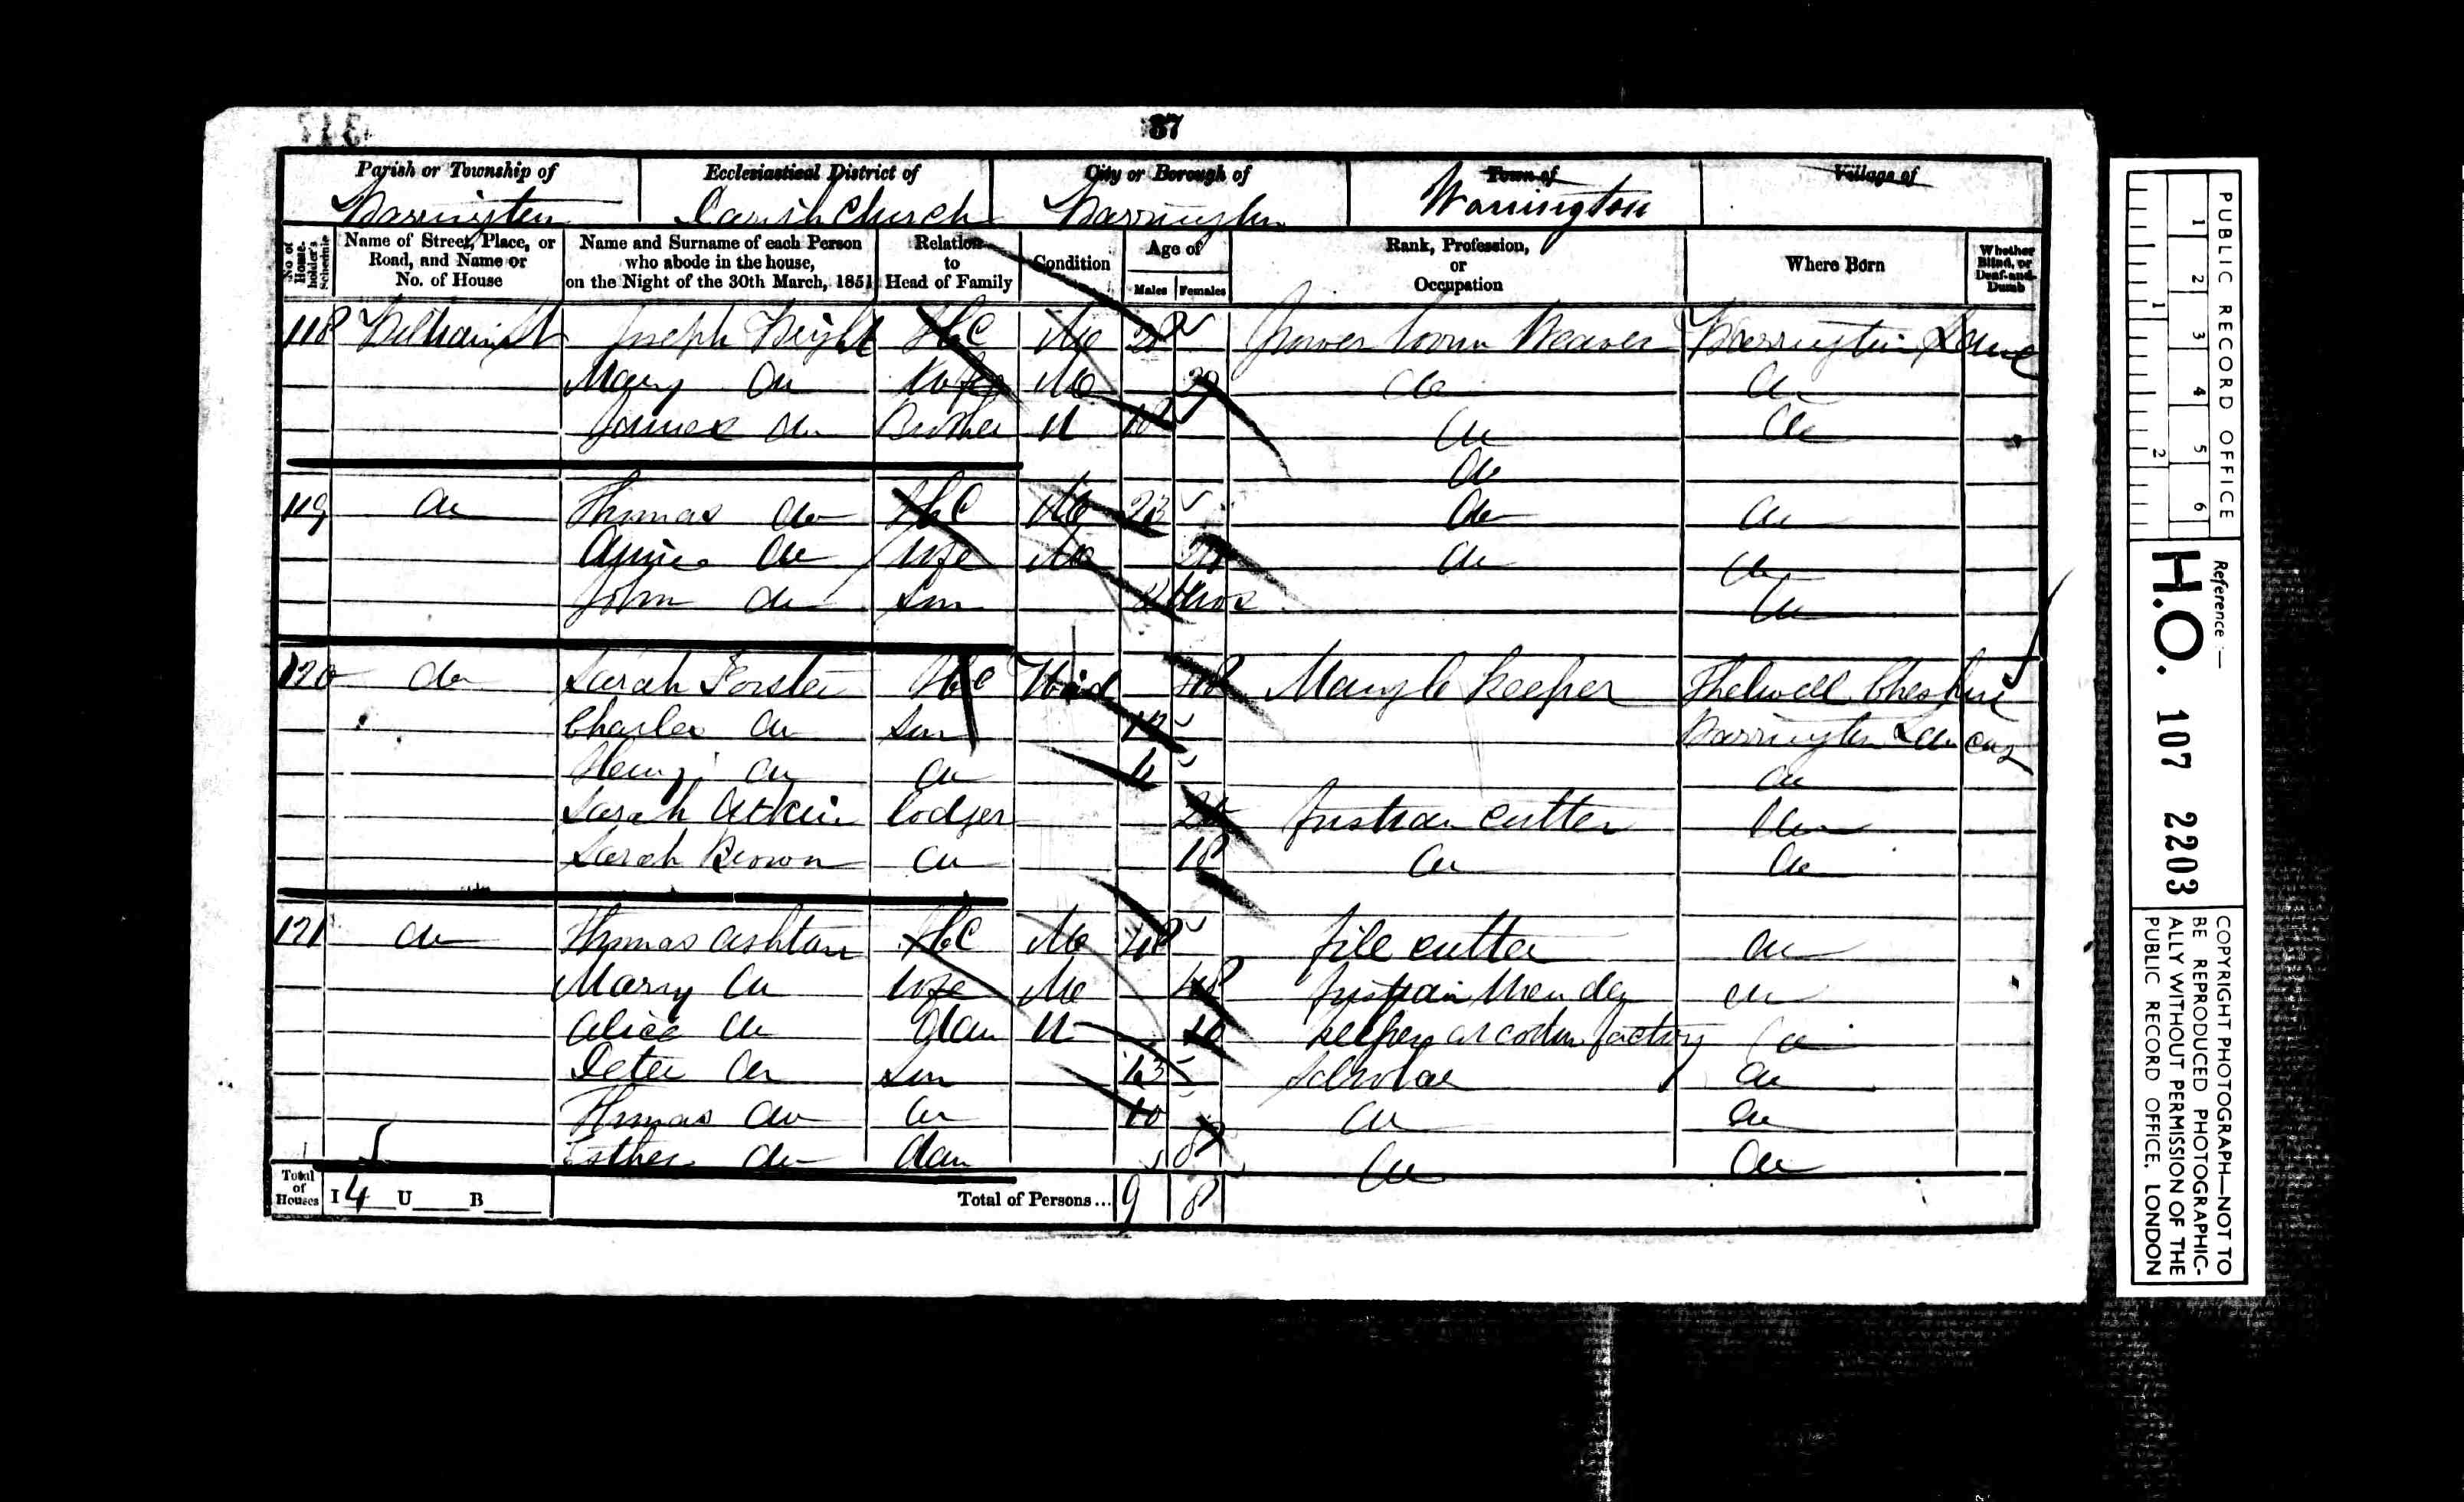 37
Parish or Township of Ecclesiastical District of City or Borough of Town of Village of
Warrington Parish Church Warrington Warrington
No. of House-holder's Schedule Name of Street, Place, or Road, and Name or No. of House Name and Surname of each Person who abode in the house, on the Night of the 30th March, 1851 Relation to Head of Family Condition Age of Males Females Rank, Profession, or Occupation Where Born Whether Blind, or Deaf-and-Dumb
118 Joseph Wright Power loom Weaver Warrington
Mary do Wife do do
James do Brother U do do
do
119 do Thomas do 23 do do
do Wife do do
John do Son Mos do
120 do Sarah Forster Wid Mangle Keeper Thelwell Cheshire
Charles do Son Warrington Lancas
Henry do do 11 do
Sarah Atkin Lodger Fustian Cutter do
Sarah Brown do 18 do do
121 do Thomas Ashton 48 File cutter do
Mary do Wife 48 Fustian Mender do
Alice do Dau U at Cotton factory do
Peter do Son 13 Scholar do
Thomas do do 10 do do
Esther do Dau 8 do do
Total of Houses I 4 U B Total of Persons... 9 8
PUBLIC RECORD OFFICE
1 2 3 4 5 6
1 2
Reference :—
H.O. 107 2203
COPYRIGHT PHOTOGRAPH—NOT TO
BE REPRODUCED PHOTOGRAPHIC-
ALLY WITHOUT PERMISSION OF THE
PUBLIC RECORD OFFICE, LONDON